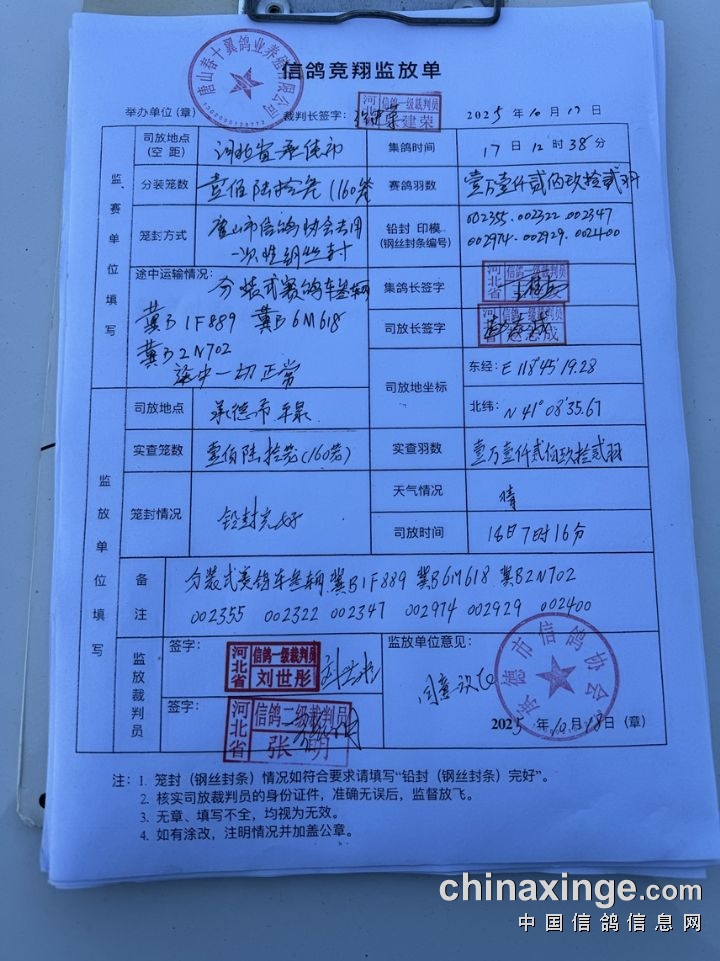 信鸽竞翔监放单
唐山春十翼鸽业养殖有限公司
举办单位（章） 裁判长签字： 河北 信鸽一级裁判员 建荣 2025 年 10 月 17 日
监赛单位填写
司放地点（空 距） 河北省承德市 集鸽时间 17 日 12 时 38 分
分装笼数 壹佰陆拾笼（160笼） 赛鸽羽数 壹万壹仟贰佰玖拾贰羽
笼封方式 唐山市信鸽协会专用一次性钢丝封
铅封 印模（钢丝封条编号） 002355.002322.002347
002974.002929.002400
途中运输情况： 分装式赛鸽车叁辆
冀B1F889 冀B6M618
冀B2N702
途中一切正常
集鸽长签字 河北省 信鸽一级裁判员
司放长签字 河北省 信鸽一级裁判员 志成
司放地坐标 东经：E 118°45'19.28
北纬：N 41°08'35.67
监放单位填写
司放地点 承德市平泉
实查笼数 壹佰陆拾笼（160笼） 实查羽数 壹万壹仟贰佰玖拾贰羽
笼封情况 铅封完好 天气情况 晴
司放时间 18日7时16分
备注 分装式赛鸽车叁辆 冀B1F889 冀B6M618 冀B2N702
002355 002322 002347 002974 002929 002400
监放裁判员
签字： 河北省 信鸽一级裁判员 刘世彤
签字： 河北省 信鸽二级裁判员 张 明
监放单位意见：
同意放飞
承德市信鸽协会
2025 年 10 月 18 日（章）
注： 1. 笼封（钢丝封条）情况如符合要求请填写“铅封（钢丝封条）完好”。
2. 核实司放裁判员的身份证件，准确无误后，监督放飞。
3. 无章、填写不全，均视为无效。
4. 如有涂改，注明情况并加盖公章。
chinaxinge.com
中国信鸽信息网